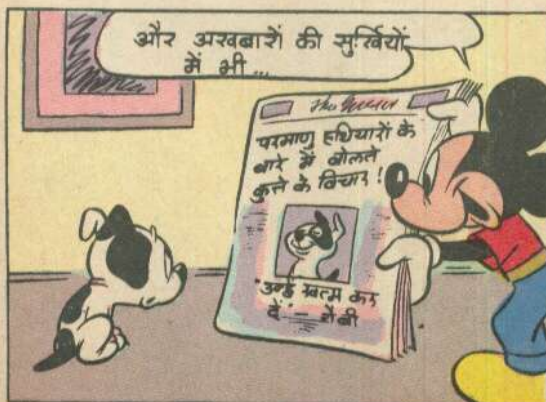 और अखबारों की सुर्खियों
में भी...
परमाणु हथियारों के
बारे में बोलते
कुत्ते के विचार!
"उन्हें खत्म कर
दें" –